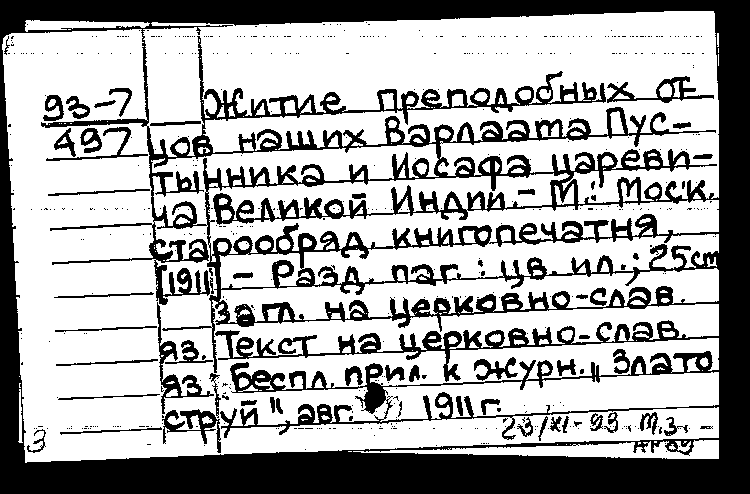 93-7 Житие преподобных от-
497 цов наших Варлаата Пус-
тынника и Иосафа цареви-
ча Великой Индии.- М.: Моск.
старообряд. книгопечатня,
[1911].- Разд. паг.: цв. ил.; 25cm
Загл. на церковно-слав.
яз. Текст на церковно-слав.
яз. Беспл. прил. к журн. „Злато
струй", авг. 1911 г.
3 23/XI-93 м.з. -